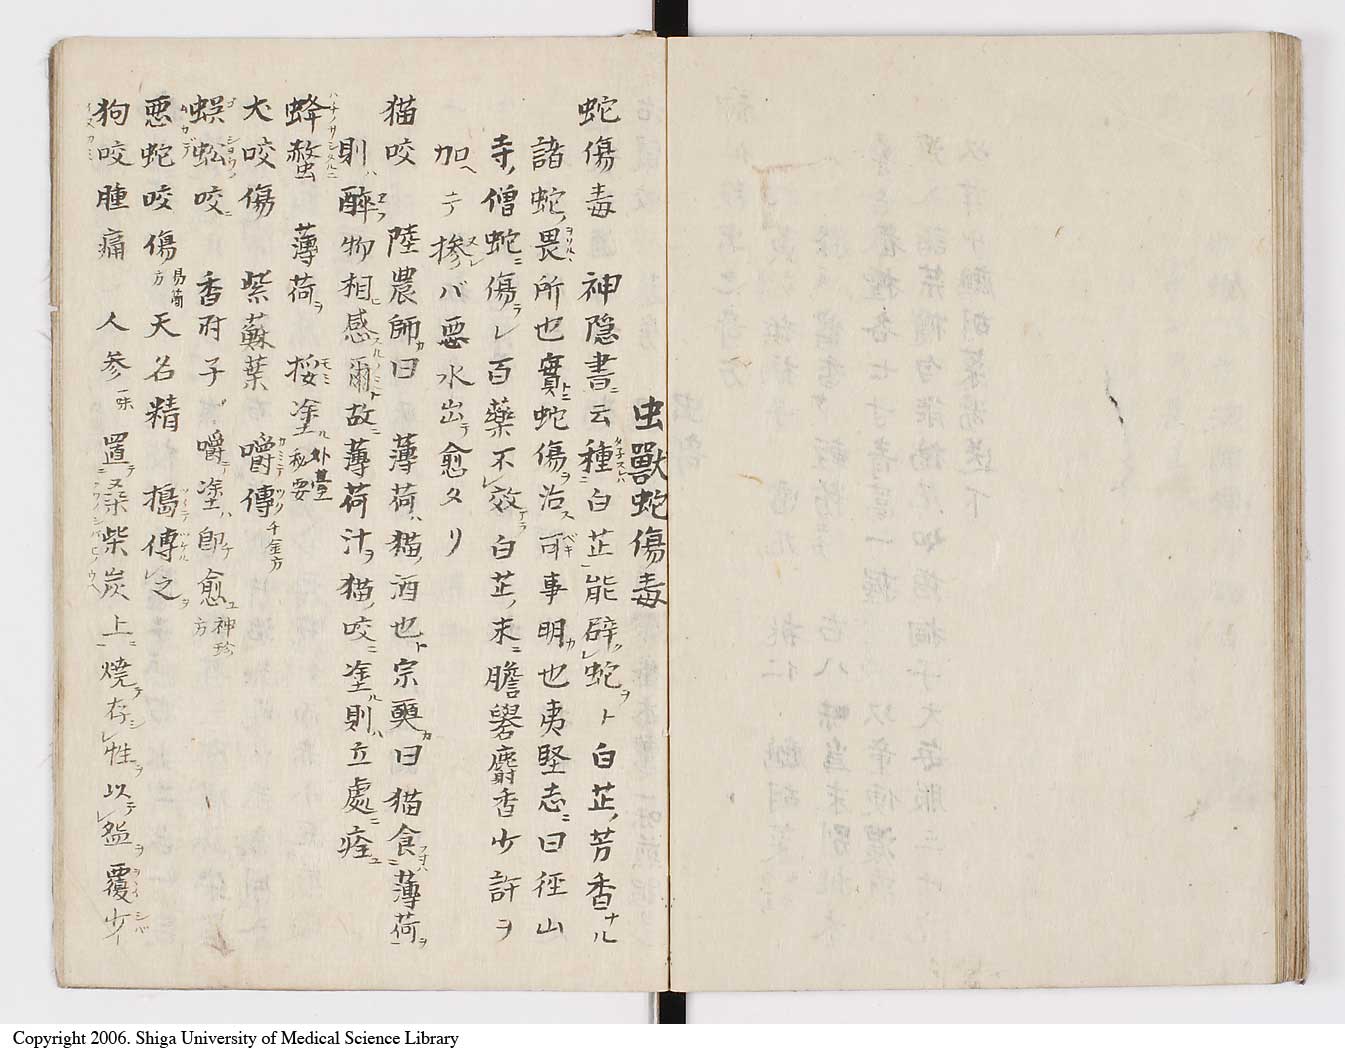 虫獸蛇傷毒
蛇傷毒 神隠書ニ云種白芷能辟蛇ヲト白芷ノ芳香ナル
諸蛇ノ畏所也實ニ蛇傷ヲ治ス可キ事明カ也夷堅志ニ曰径山
寺ノ僧蛇ニ傷ラレ百藥不効白芷ノ末ニ膽礬麝香少許ヲ
加ヘテ掺レバ悪水出テ愈タリ
猫咬 陸農師カ曰 薄荷ハ猫ノ酒也ト宗奭カ曰猫食薄荷ヲ
則ハ醉フ物相感スルノミ爾故ニ薄荷汁ヲ猫ノ咬ニ塗ル則ハ立處ニ痊ユ
蜂螫 薄荷ヲ 挼塗ル 外臺秘要
犬咬傷 紫蘇葉 嚼傅 千金方
蜈蚣咬ニ 香附子 嚼テ塗ハ即愈ユ 神珍方
悪蛇咬傷 易簡方 天名精 搗傅之ヲ
狗咬腫痛 人参一味 置テ桑柴炭上ニ燒テ存シ性ヲ以テ盌ヲ覆少
Copyright 2006. Shiga University of Medical Science Library